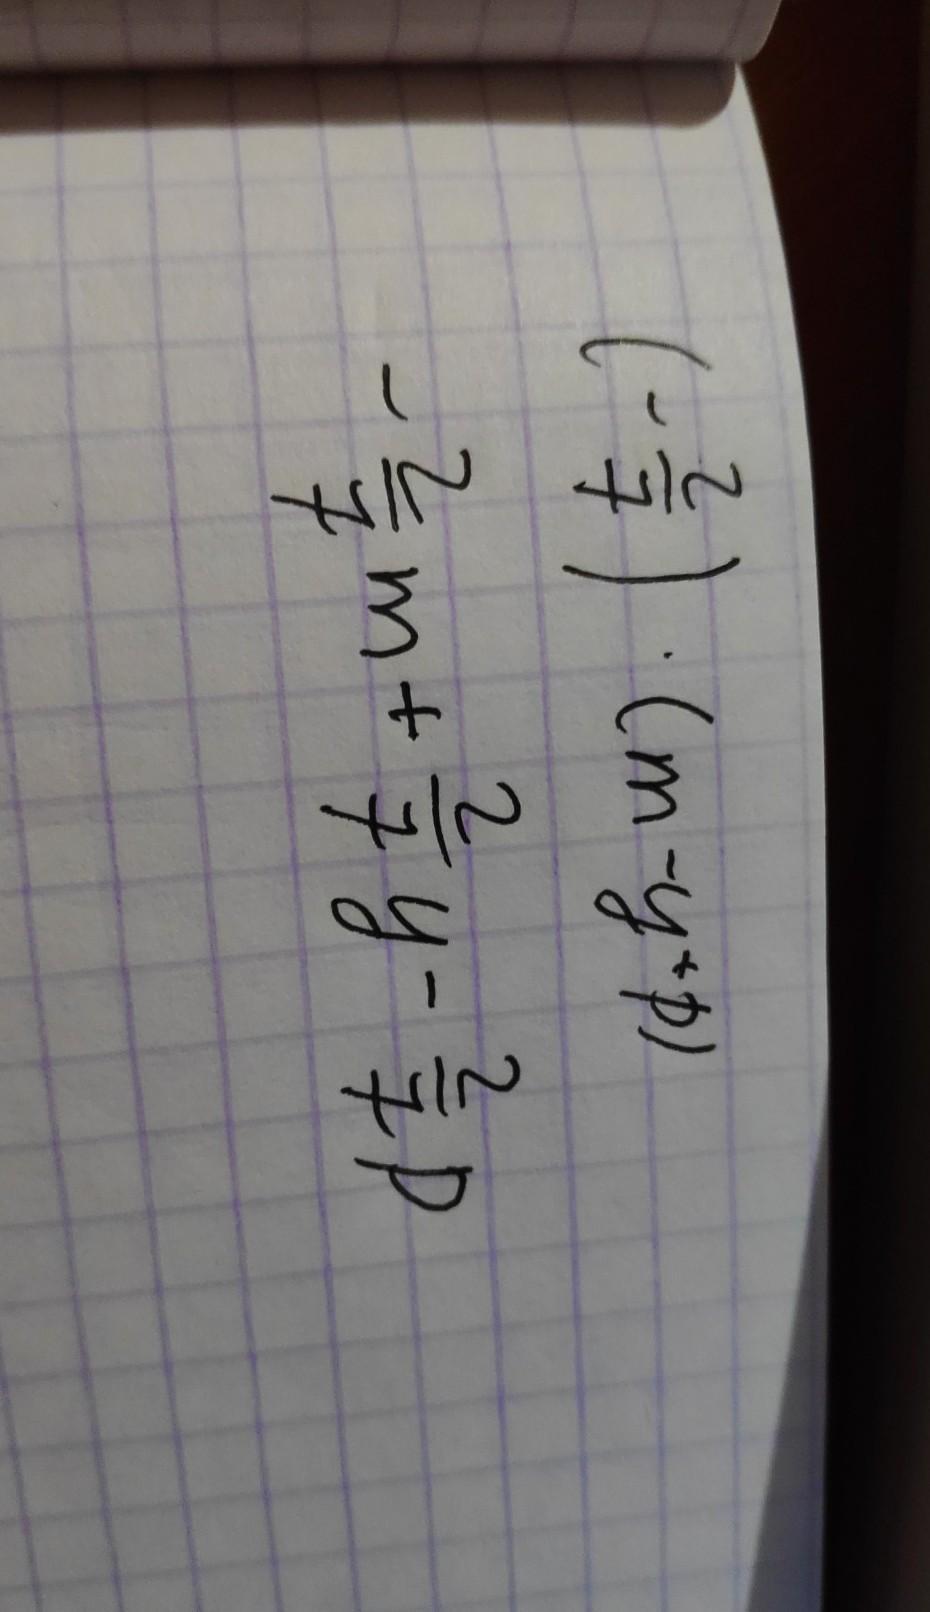 (-2/7) · (m-y+p)
-2/7 m + 2/7 y - 2/7 p